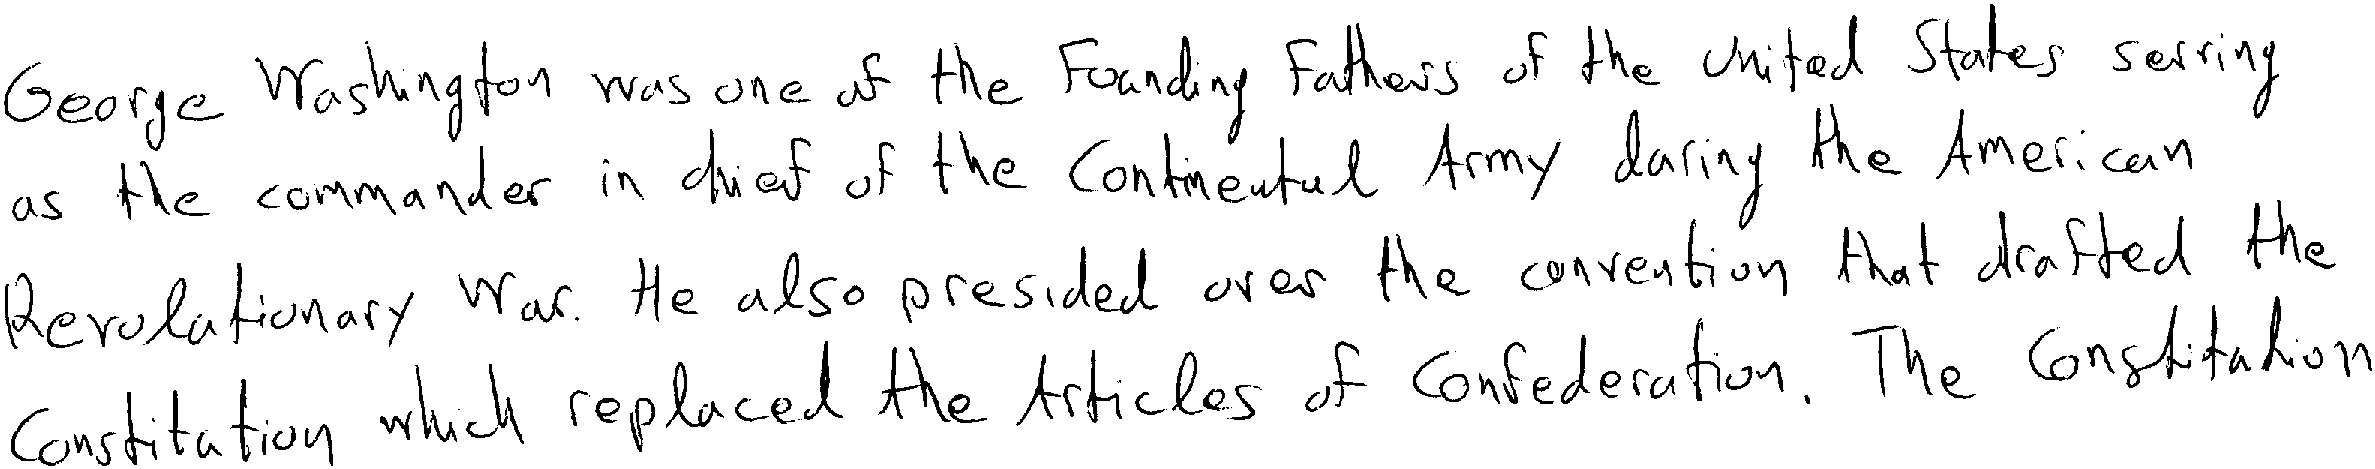 George Washington was one of the Founding Fathers of the United States serving
as the commander in chief of the Continental Army during the American
Revolutionary War. He also presided over the convention that drafted the
Constitution which replaced the Articles of Confederation. The Constitution